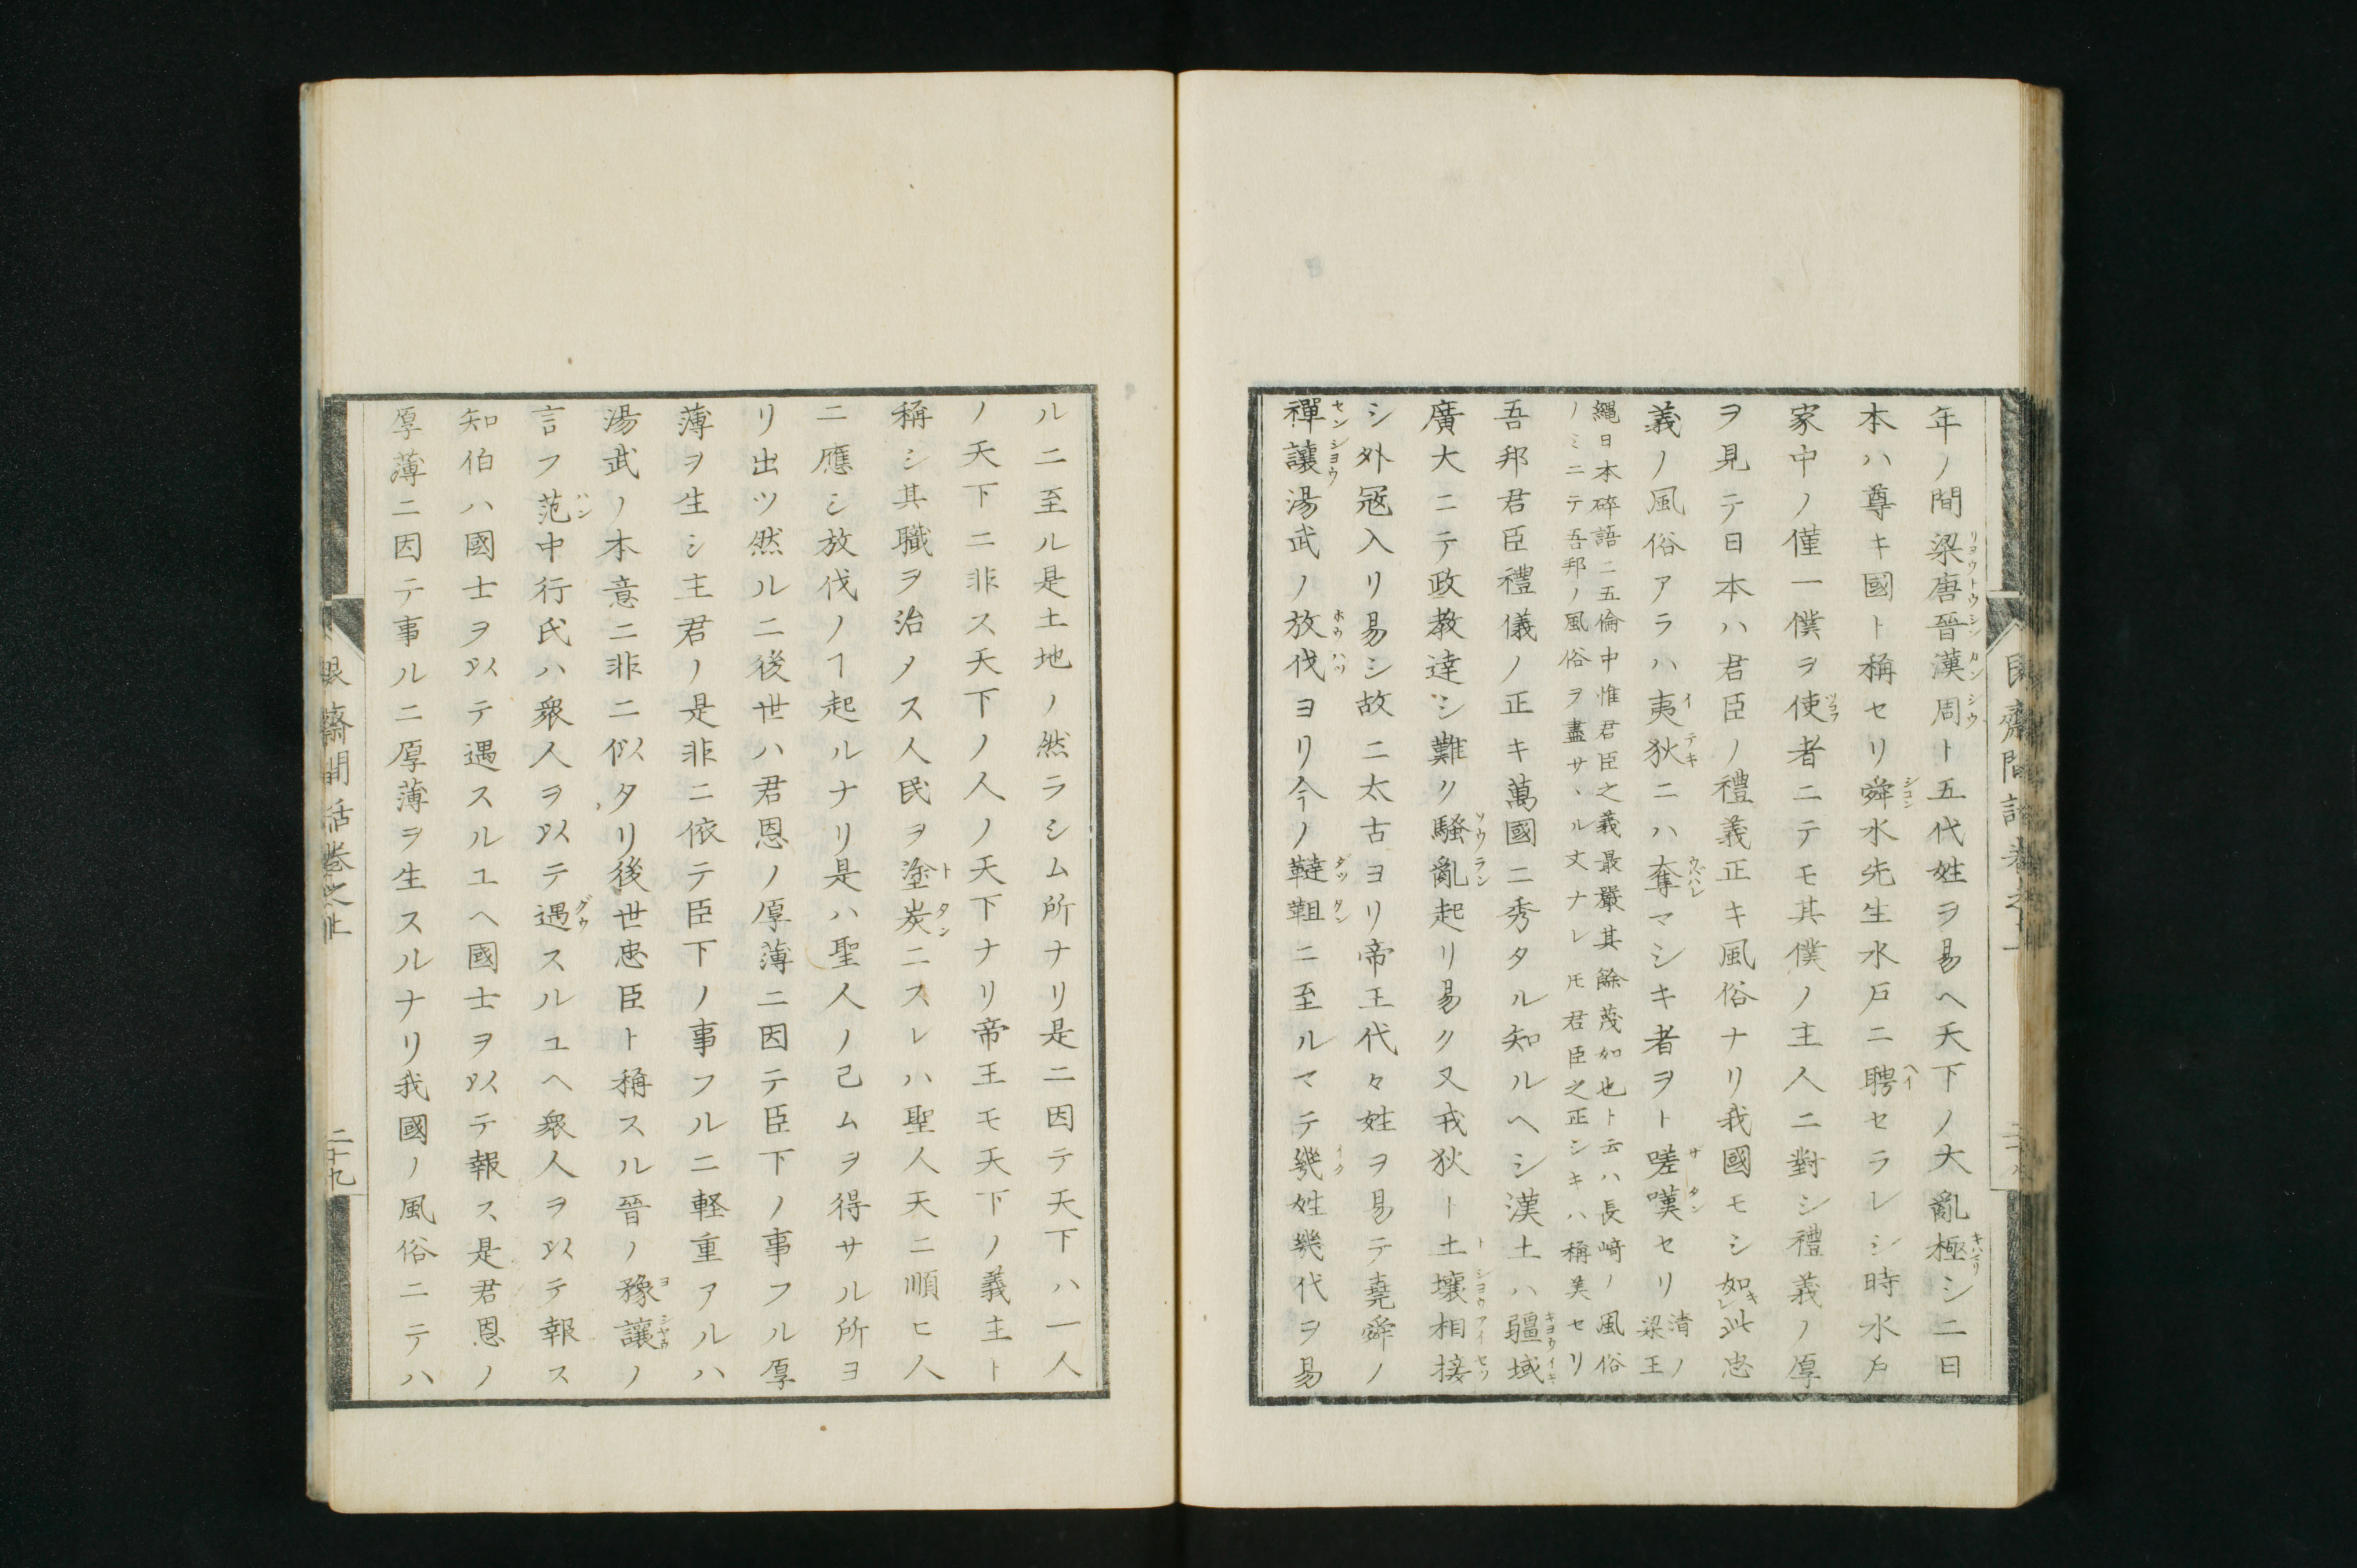 年ノ間梁唐晉漢周ト五代姓ヲ易ヘ天下ノ大亂極シニ日
本ハ尊キ國ト稱セリ舜水先生水戸ニ聘セラレシ時水戸
家中ノ僅一僕ヲ使者ニテモ其僕ノ主人ニ對シ禮義ノ厚
ヲ見テ日本ハ君臣ノ禮義正キ風俗ナリ我國モシ如此忠
義ノ風俗アラハ夷狄ニハ奪マシキ者ヲト嗟嘆セリ清ノ梁王
繩日本碎語ニ五倫中惟君臣之義最嚴其餘蔑如也ト云ハ長崎ノ風俗
ノミニテ吾邦ノ風俗ヲ盡サヽル文ナレ𪜈君臣之正シキハ稱美セリ
吾邦君臣禮儀ノ正キ萬國ニ秀タル知ルヘシ漢土ハ疆域
廣大ニテ政教達シ難ク騷亂起リ易ク又戎狄ト土壤相接
シ外冦入リ易シ故ニ太古ヨリ帝王代々姓ヲ易テ堯舜ノ
禪讓湯武ノ放伐ヨリ今ノ韃靼ニ至ルマテ幾姓幾代ヲ易
ルニ至ル是土地ノ然ラシム所ナリ是ニ因テ天下ハ一人
ノ天下ニ非ス天下ノ人ノ天下ナリ帝王モ天下ノ義主ト
稱シ其職ヲ治メス人民ヲ塗炭ニスレハ聖人天ニ順ヒ人
ニ應シ放伐ノヿ起ルナリ是ハ聖人ノ己ムヲ得サル所ヨ
リ出ツ然ルニ後世ハ君恩ノ厚薄ニ因テ臣下ノ事フル厚
薄ヲ生シ主君ノ是非ニ依テ臣下ノ事フルニ軽重アルハ
湯武ノ本意ニ非ニ似タリ後世忠臣ト稱スル晉ノ豫讓ノ
言フ范中行氏ハ衆人ヲ以テ遇スルユヘ衆人ヲ以テ報ス
知伯ハ國士ヲ以テ遇スルユヘ國士ヲ以テ報ス是君恩ノ
厚薄ニ因テ事ルニ厚薄ヲ生スルナリ我國ノ風俗ニテハ
二十九